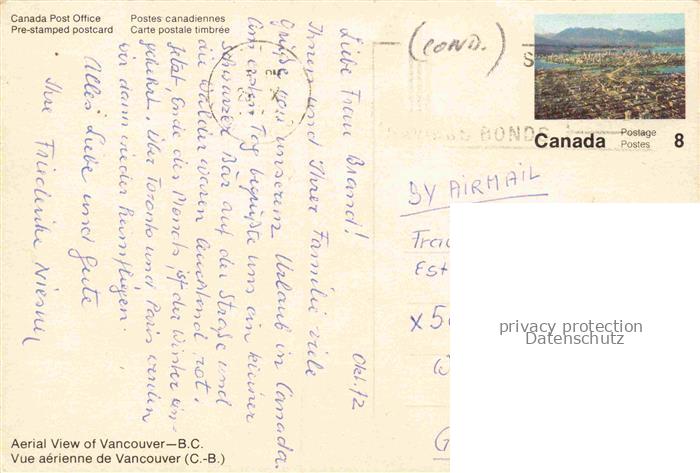 Canada Post Office
Pre-stamped postcard
Postes canadiennes
Carte postale timbrée
(COND.)
S
SAVINGS BONDS
Canada
Postage
Postes
8
Liebe Frau Brand!
Okt. 72
Ihnen und Ihrer Familie viele
Grüße von unserem Urlaub in Canada.
Am ersten Tag begrüßte uns ein kleiner
schwarzer Bär auf der Straße und
die Wälder waren leuchtend rot.
Jetzt, Ende des Monats, ist der Winter ein-
gekehrt. Über Toronto und Paris werden
wir dann wieder heimfliegen.
Alles Liebe und Gute
Ihre Friederike
BY AIRMAIL
Est
x5
G
privacy protection
Datenschutz
Aerial View of Vancouver—B.C.
Vue aérienne de Vancouver (C.-B.)